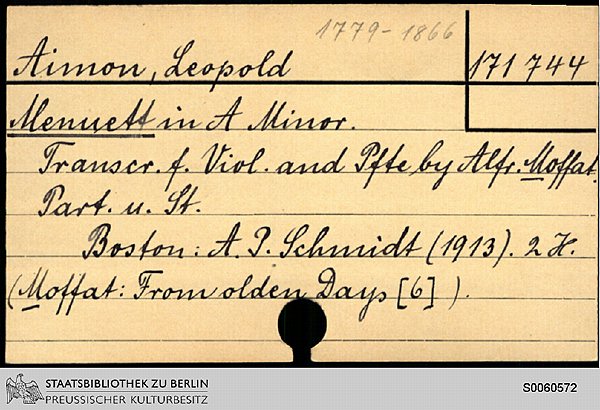 1779-1866
Aimon, Leopold 171 744
Menuett in A Minor.
Transcr. f. Viol. and Pfte by Alfr. Moffat.
Part. u. St.
Boston: A. P. Schmidt (1913). 2 H.
(Moffat: From olden Days [6] ).
STAATSBIBLIOTHEK ZU BERLIN
PREUSSISCHER KULTURBESITZ
S0060572